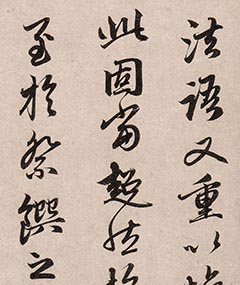 法語又重以
此固當超然
至於祭饌之